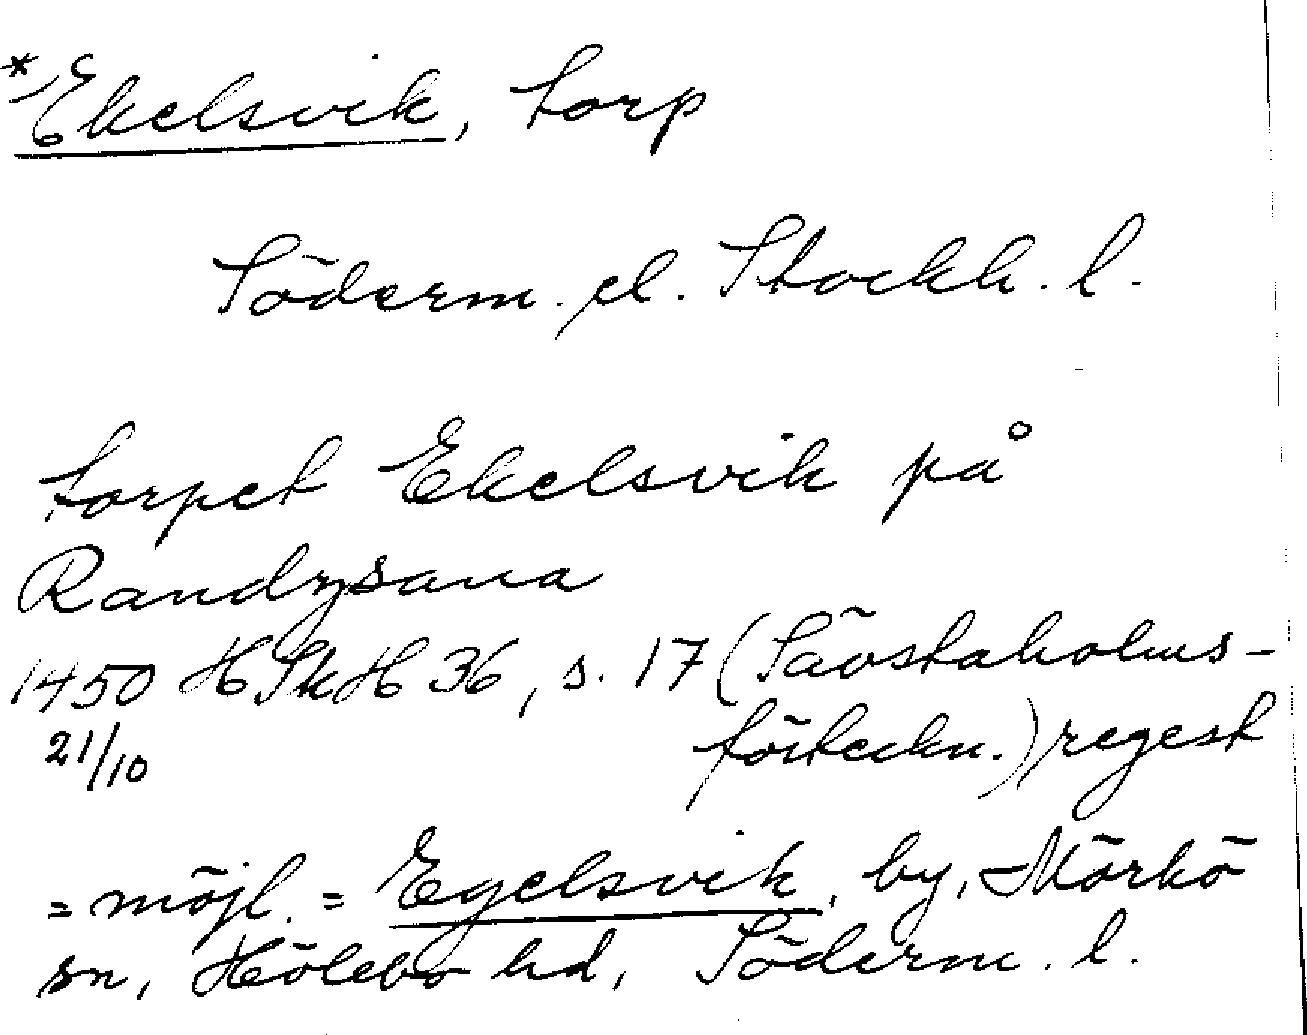 *Ekelsvik, torp
Söderm. el. Stockh. l.
torpet Ekelsvik på
Randysana
1450 HSkH 36, s. 17 (Sävstaholms-
21/10 förteckn.) regest
= möjl. = Egelsvik, by, Mörkö
sn, Hölebo hd, Söderm. l.